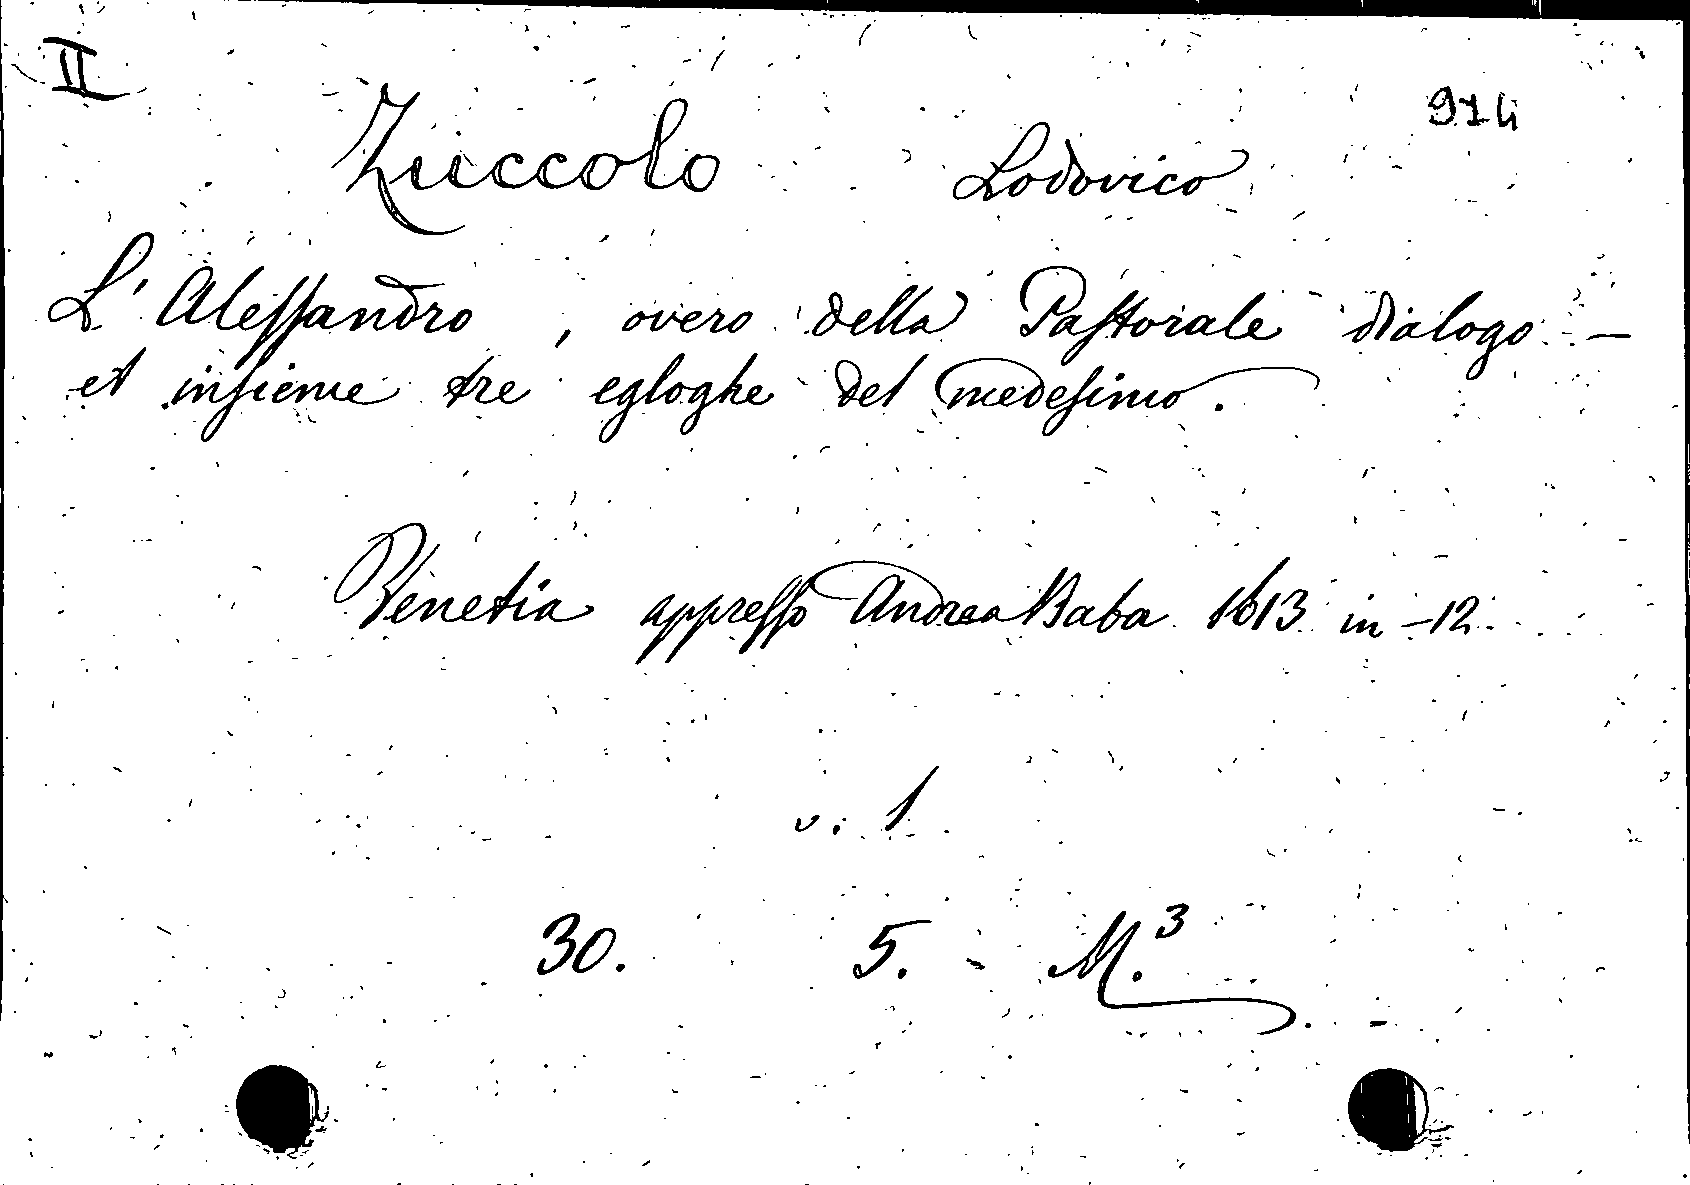 II
974
Zuccolo Lodovico
L'Alessandro, overo della Pastorale dialogo –
et insieme tre egloghe del medesimo.
Venetia appresso Andrea Baba 1613 in-12
v. 1
30. 5. - M.³